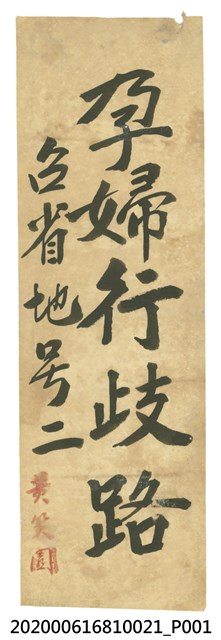 孕婦行歧路
台省地号二
黄笑園
202000616810021_P001